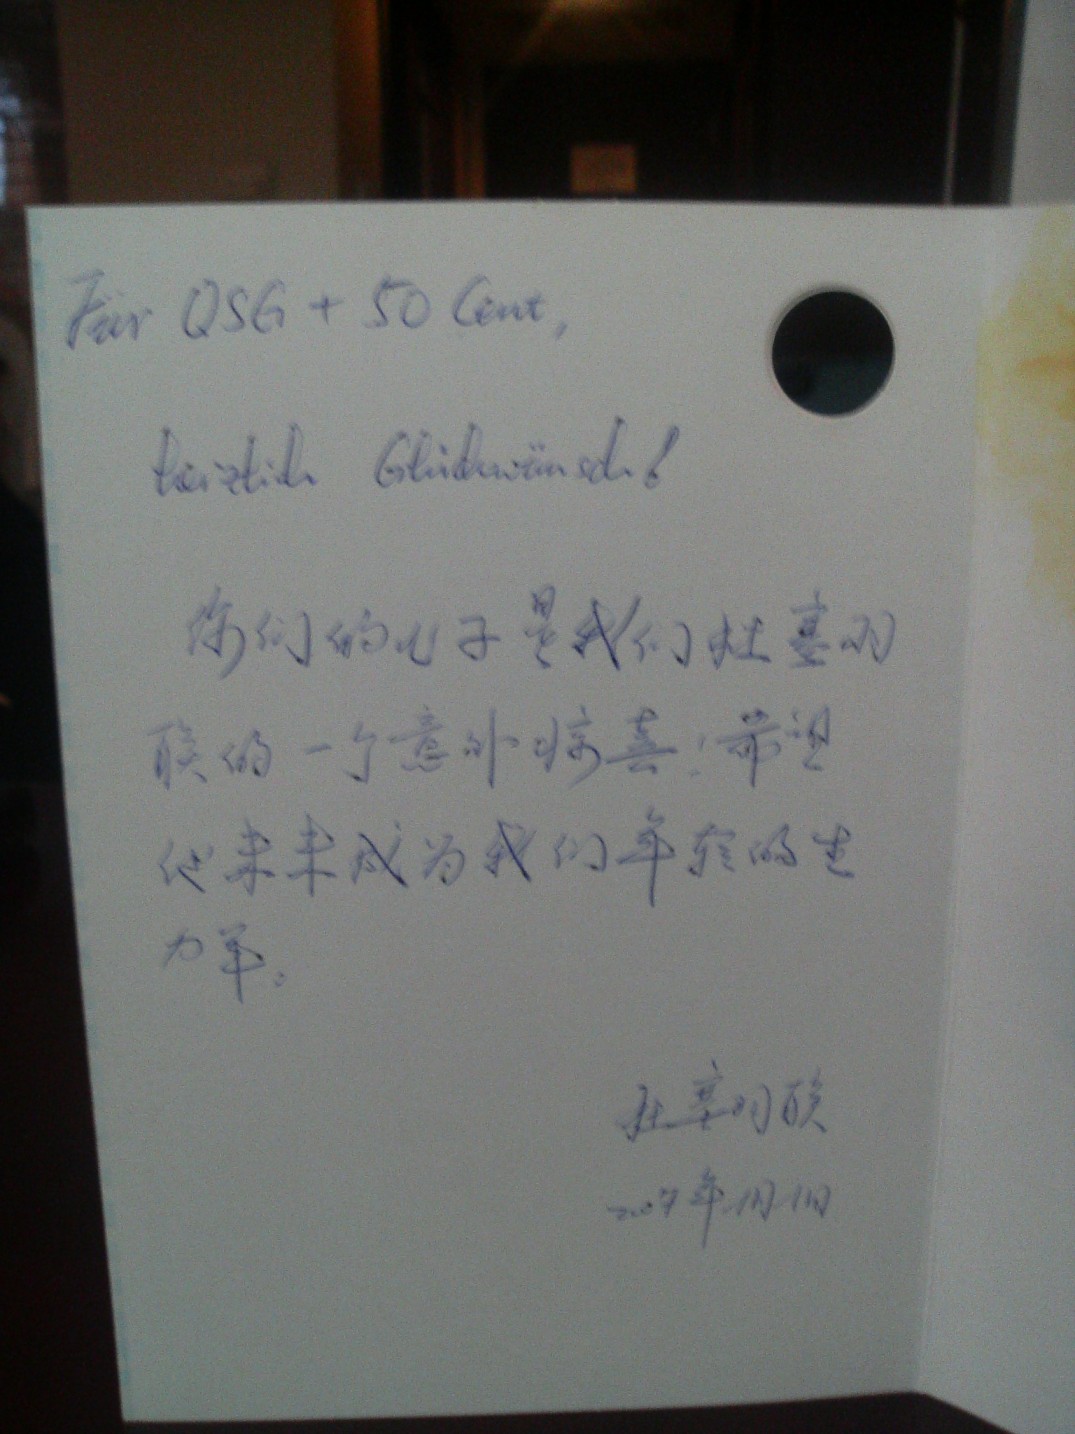 Für QSG + 50 Cent,
herzlich Glückwünsch!
你们的儿子是我们杜塞羽
联的一个意外惊喜!希望
他未来成为我们年轻的生
力军。
杜塞羽联
2007年1月1日